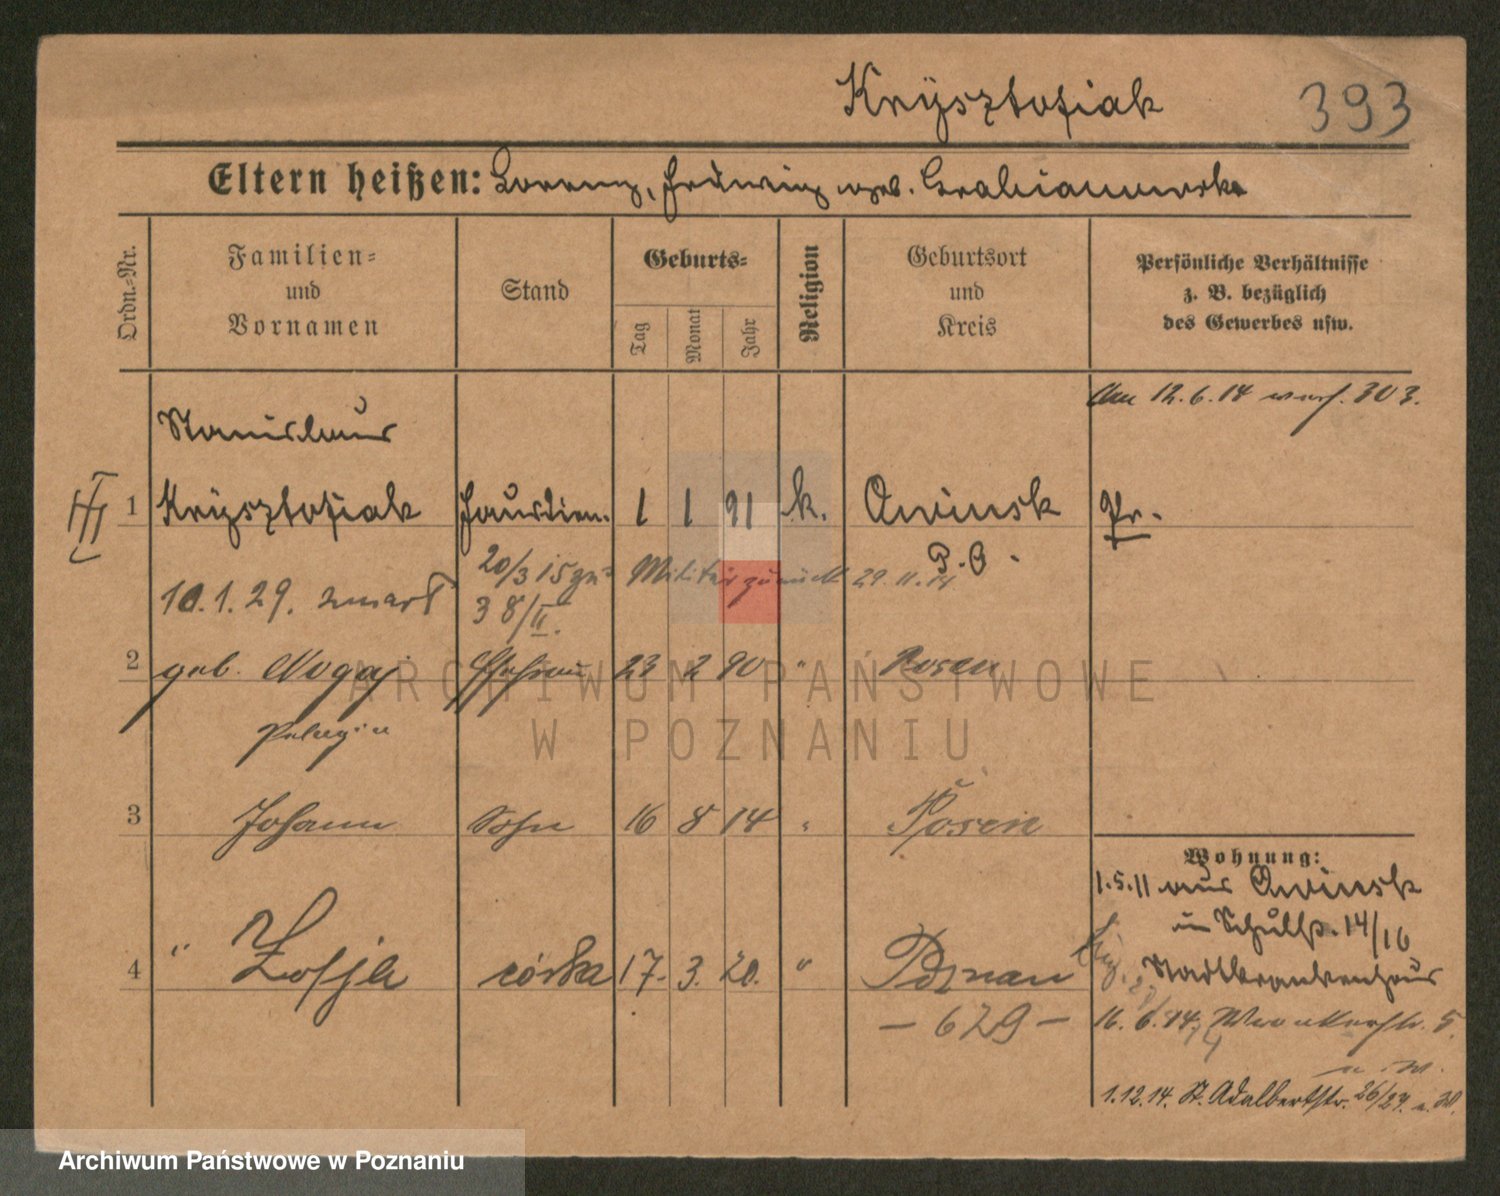 Krysztofiak 393
Eltern heißen: Lorenz, Hedwig geb. Grabianowska
Ordn.-Nr.
Familien-
und
Vornamen
Stand
Geburts-
Tag
Monat
Jahr
Religion
Geburtsort
und
Kreis
Persönliche Verhältnisse
z. B. bezüglich
des Gewerbes usw.
Am 12.6.14 verh. 303.
Stanislaus
1 Krysztofiak Hausdien. 1 1 91 k. Owinsk Pr.
P. O.
20/3 15 zu Militär zurück 29.11.14
10.1.29. zmarł 38/II.
2 geb. Nogaj Ehefrau 23 2 90 " Posen
Pelagia
3 Johann Sohn 16 8 14 " Posen
Wohnung:
1.5.11 aus Owinsk
in Schulstr. 14/16
4 " Zofja córka 17. 3. 20. " Poznań
Stadtkrankenhaus
— 629 —
16. 6. 14. Wronkerstr. 5.
1.12.14. St. Adalbertstr. 26/27.
ARCHIWUM PAŃSTWOWE
W POZNANIU
Archiwum Państwowe w Poznaniu